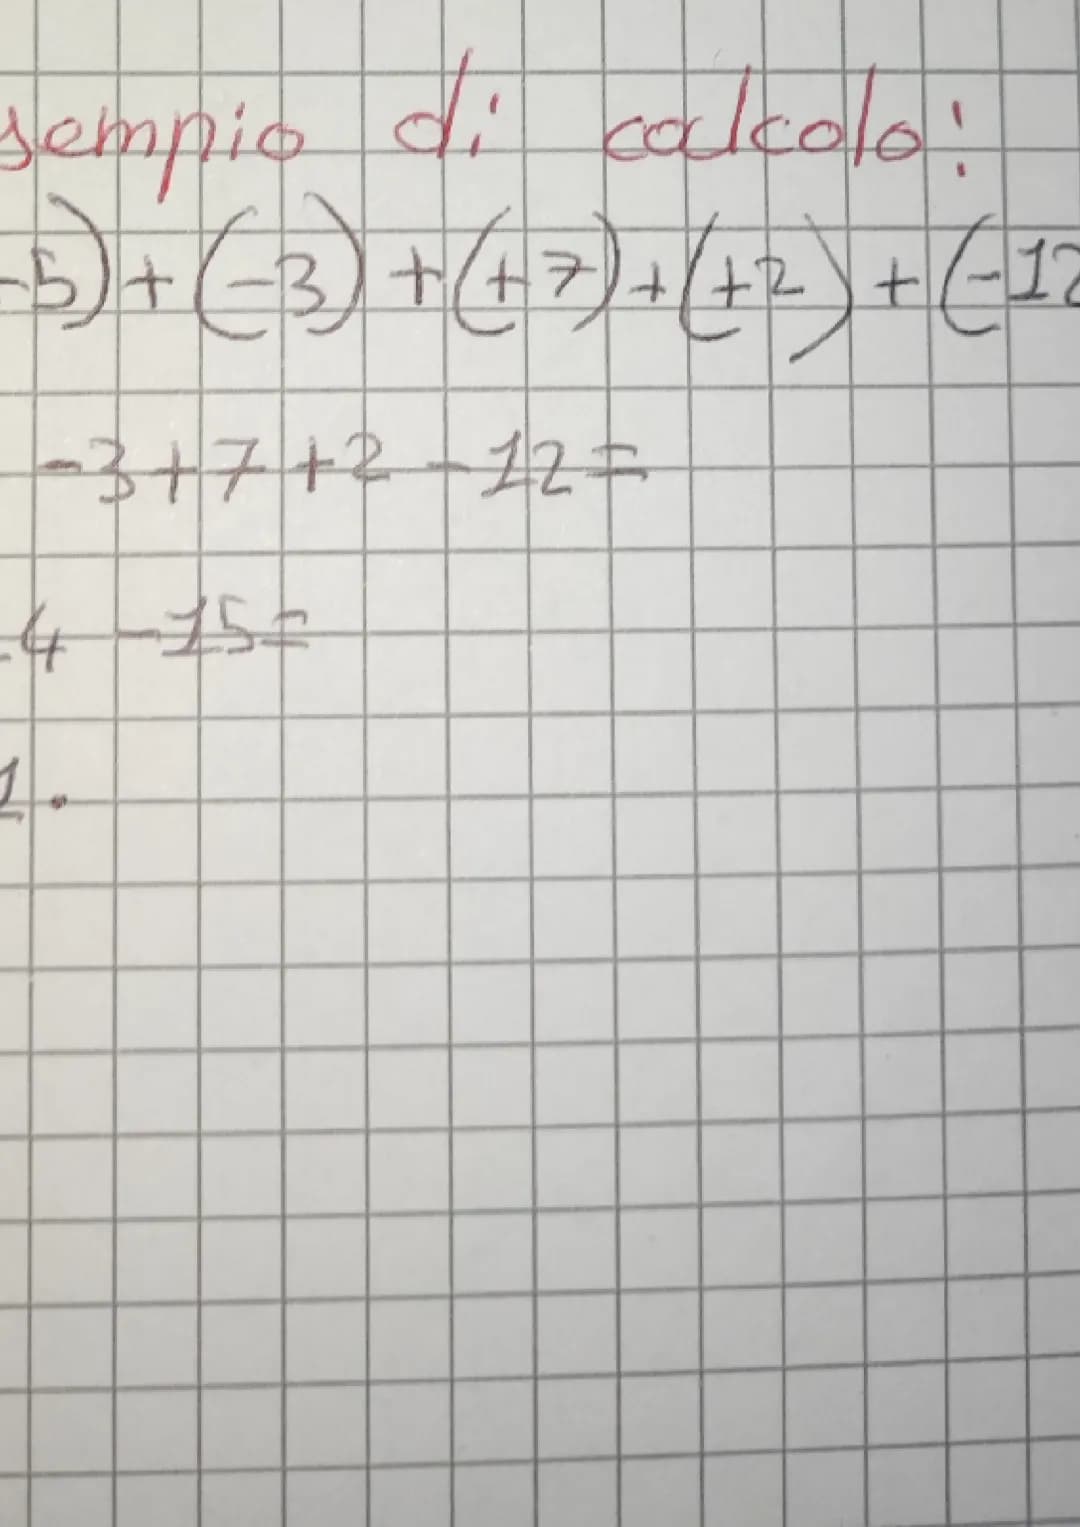 sempio di calcolo:
-5)+(-3)+(+7)+(+2)+(-12
-3+7+2-12=
14-15=
1.